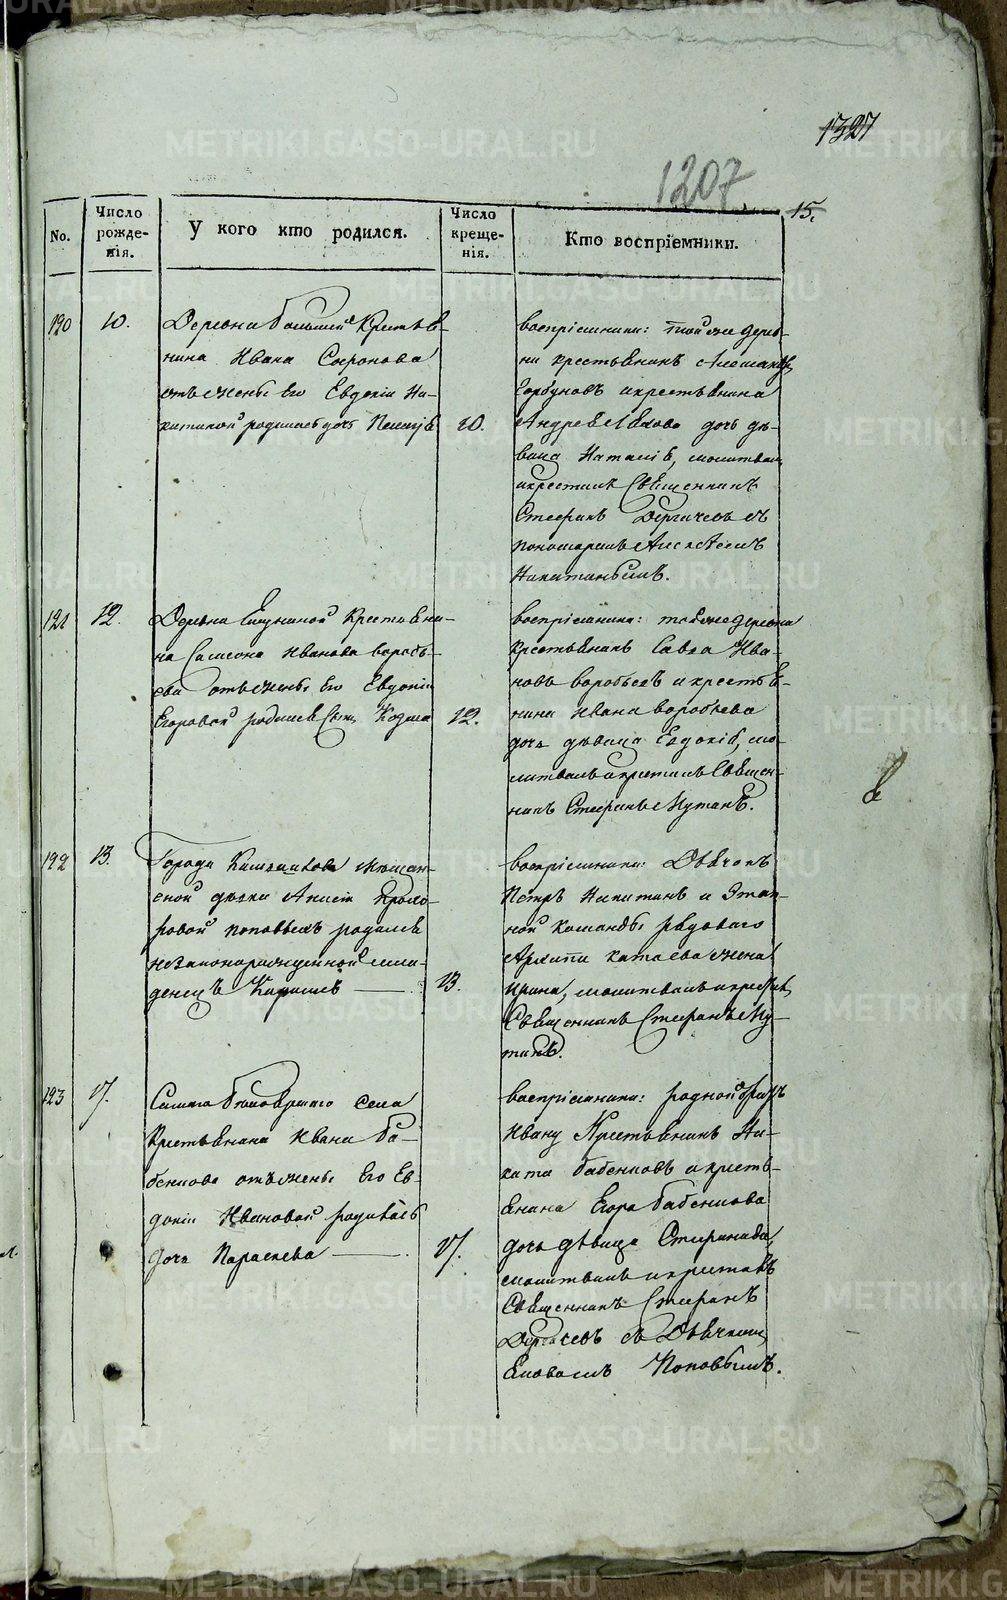 1327
1207
15.
No.
Число рожде-нія.
У кого кто родился.
Число креще-нія.
Кто воспріемники.
120
10.
Деревни Большей Крестья-
нина Ивана Софронова
отъ жены его Евдокіи Ни-
китиной родилась дочь
10.
воспріемники: той же дерев-
ни крестьянинъ
Горбуновъ и крестьянина
Андрея дочь дѣ-
вица Наталія, молитвовалъ
и крестилъ Священникъ
Стефанъ Дергачевъ съ
пономаремъ Алексѣемъ
Никитинымъ.
121
12.
Деревни Крестьяни-
на Самсона Иванова Воробь-
ева отъ жены его Евдокіи
Егоровой родился сынъ Козма
12.
воспріемники: той же деревни
Крестьянинъ Савва Ива-
новъ Воробьевъ и крестья-
нина Ивана Воробьева
дочь дѣвица Евдокія, мо-
литвовалъ и крестилъ Священ-
никъ Стефанъ
122
13.
Города Камышлова мѣщан-
ской дѣвки Анисіи Прохо-
ровой Поповыхъ родился
незаконорожденной мла-
денецъ Кирилъ
13.
воспріемники: Дьячокъ
Петръ Никитинъ и Этап-
ной команды рядоваго
Архипа Катаева жена
Ирина, молитвовалъ и крестилъ
Священникъ Стефанъ
123
17.
Самаго села
Крестьянина Ивана Ба-
бенцова отъ жены его Ев-
докіи Ивановой родилась
дочь Параскева
17.
воспріемники: родной братъ
Ивану Крестьянинъ Ни-
кита Бабенцовъ и кресть-
янина Егора Бабенцова
дочь дѣвица Стефанида,
молитвовалъ и крестилъ
Священникъ Стефанъ
Дергачевъ съ Дьячкомъ
Поповымъ.
METRIKI.GASO-URAL.RU